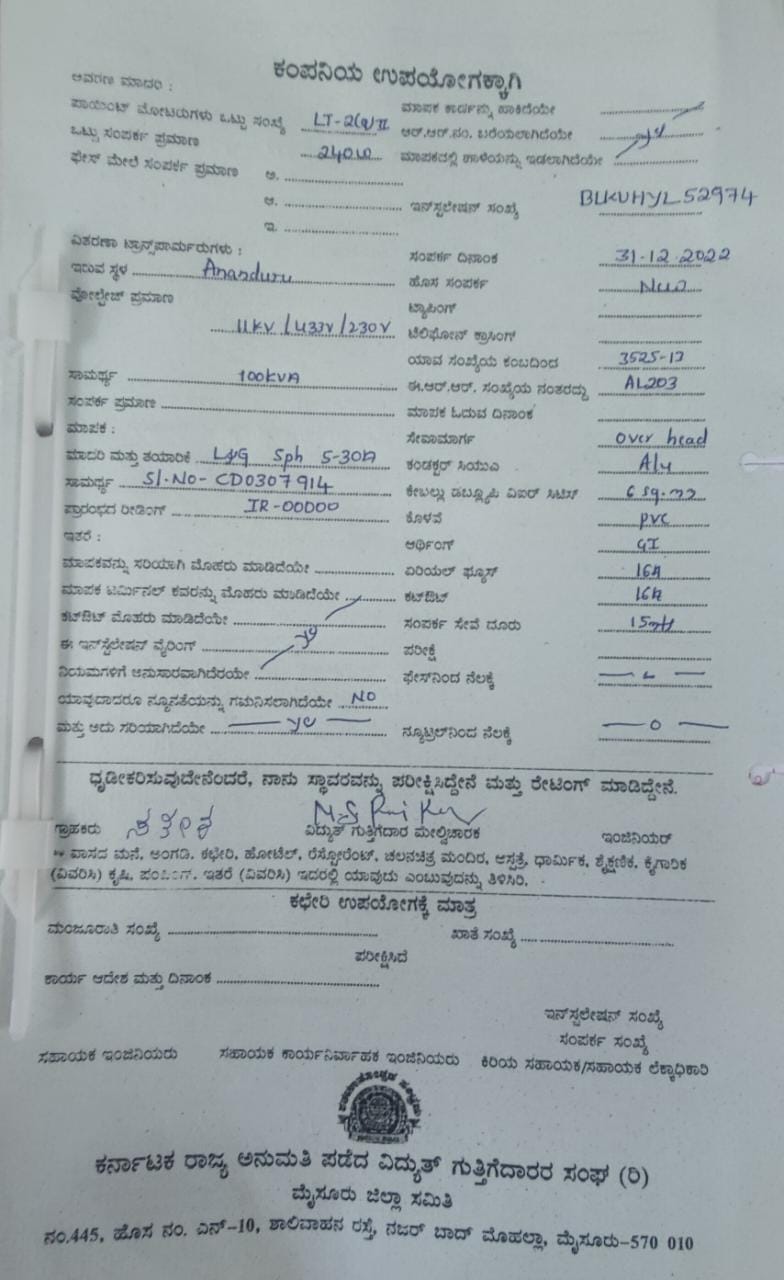 ಕಂಪನಿಯ ಉಪಯೋಗಕ್ಕಾಗಿ
ಆವರಣ ಮಾದರಿ :
ಪಾಯಿಂಟ್ ಮೋಟರುಗಳು ಒಟ್ಟು ಸಂಖ್ಯೆ LT-2(a)II ಮಾಪಕ ಕಾರ್ಡನ್ನು ಹಾಕಿದೆಯೇ
ಒಟ್ಟು ಸಂಪರ್ಕ ಪ್ರಮಾಣ 240w ಆರ್.ಆರ್.ನಂ. ಬರೆಯಲಾಗಿದೆಯೇ
ಫೇಸ್ ಮೇಲೆ ಸಂಪರ್ಕ ಪ್ರಮಾಣ ಅ. ಮಾಪಕದಲ್ಲಿ ಹಾಳೆಯನ್ನು ಇಡಲಾಗಿದೆಯೇ
ಆ. ಇನ್‌ಸ್ಟಲೇಷನ್ ಸಂಖ್ಯೆ BLKUHYL52974
ಇ.
ವಿತರಣಾ ಟ್ರಾನ್ಸ್‌ಪಾರ್ಮರುಗಳು : ಸಂಪರ್ಕ ದಿನಾಂಕ 31-12-2022
ಇರುವ ಸ್ಥಳ Ananduru ಹೊಸ ಸಂಪರ್ಕ
ವೋಲ್ಟೇಜ್ ಪ್ರಮಾಣ ಟ್ಯಾಪಿಂಗ್
11KV/433V/230V ಟೆಲಿಫೋನ್ ಕ್ರಾಸಿಂಗ್
ಯಾವ ಸಂಖ್ಯೆಯ ಕಂಬದಿಂದ 3525-17
ಸಾಮರ್ಥ್ಯ 100KVA ಈ.ಆರ್.ಆರ್. ಸಂಖ್ಯೆಯ ನಂತರದ್ದು AL203
ಸಂಪರ್ಕ ಪ್ರಮಾಣ ಮಾಪಕ ಓದುವ ದಿನಾಂಕ
ಮಾಪಕ : ಸೇವಾಮಾರ್ಗ over head
ಮಾದರಿ ಮತ್ತು ತಯಾರಿಕೆ L&G Sph 5-30A ಕಂಡಕ್ಟರ್ ಸಿಯುಎ Alu
ಸಾಮರ್ಥ್ಯ Sl.No-CD0307914 ಕೇಬಲ್ಲು ಡಬ್ಲ್ಯೂಪಿ ವಿಐರ್ ಸಿಟಿಸ್ 6 sq.mm
ಪ್ರಾರಂಭದ ರೀಡಿಂಗ್ IR-00000 ಕೊಳವೆ PVC
ಇತರೆ : ಅರ್ಥಿಂಗ್ GI
ಮಾಪಕವನ್ನು ಸರಿಯಾಗಿ ಮೊಹರು ಮಾಡಿದೆಯೇ ಏರಿಯಲ್ ಫ್ಯೂಸ್ 16A
ಮಾಪಕ ಟರ್ಮಿನಲ್ ಕವರನ್ನು ಮೊಹರು ಮಾಡಿದೆಯೇ ಕಟ್‌ಔಟ್ 16A
ಕಟ್‌ಔಟ್ ಮೊಹರು ಮಾಡಿದೆಯೇ ಸಂಪರ್ಕ ಸೇವೆ ದೂರು 15mt
ಈ ಇನ್‌ಸ್ಟಲೇಷನ್ ವೈರಿಂಗ್ ಪರೀಕ್ಷೆ
ನಿಯಮಗಳಿಗೆ ಅನುಸಾರವಾಗಿದೆರಯೇ ಫೇಸ್‌ನಿಂದ ನೆಲಕ್ಕೆ
ಯಾವುದಾದರೂ ನ್ಯೂನತೆಯನ್ನು ಗಮನಿಸಲಾಗಿದೆಯೇ NO
ಮತ್ತು ಅದು ಸರಿಯಾಗಿದೆಯೇ ನ್ಯೂಟ್ರಲ್‌ನಿಂದ ನೆಲಕ್ಕೆ — 0 —
ಧೃಡೀಕರಿಸುವುದೇನೆಂದರೆ, ನಾನು ಸ್ಥಾವರವನ್ನು ಪರೀಕ್ಷಿಸಿದ್ದೇನೆ ಮತ್ತು ರೇಟಿಂಗ್ ಮಾಡಿದ್ದೇನೆ.
ಗ್ರಾಹಕರು ವಿದ್ಯುತ್ ಗುತ್ತಿಗೆದಾರ ಮೇಲ್ವಿಚಾರಕ ಇಂಜಿನಿಯರ್
** ವಾಸದ ಮನೆ, ಅಂಗಡಿ, ಕಛೇರಿ, ಹೋಟೆಲ್, ರೆಸ್ಟೋರೆಂಟ್, ಚಲನಚಿತ್ರ ಮಂದಿರ, ಆಸ್ಪತ್ರೆ, ಧಾರ್ಮಿಕ, ಶೈಕ್ಷಣಿಕ, ಕೈಗಾರಿಕ
(ವಿವರಿಸಿ) ಕೃಷಿ, ಪಂಪಿಂಗ್, ಇತರೆ (ವಿವರಿಸಿ) ಇದರಲ್ಲಿ ಯಾವುದು ಎಂಬುವುದನ್ನು ತಿಳಿಸಿರಿ.
ಕಛೇರಿ ಉಪಯೋಗಕ್ಕೆ ಮಾತ್ರ
ಮಂಜೂರಾತಿ ಸಂಖ್ಯೆ ಖಾತೆ ಸಂಖ್ಯೆ
ಪರೀಕ್ಷಿಸಿದೆ
ಕಾರ್ಯ ಆದೇಶ ಮತ್ತು ದಿನಾಂಕ
ಇನ್‌ಸ್ಟಲೇಷನ್ ಸಂಖ್ಯೆ
ಸಂಪರ್ಕ ಸಂಖ್ಯೆ
ಸಹಾಯಕ ಇಂಜಿನಿಯರು ಸಹಾಯಕ ಕಾರ್ಯನಿರ್ವಾಹಕ ಇಂಜಿನಿಯರು ಕಿರಿಯ ಸಹಾಯಕ/ಸಹಾಯಕ ಲೆಕ್ಕಾಧಿಕಾರಿ
ಕರ್ನಾಟಕ ರಾಜ್ಯ ಅನುಮತಿ ಪಡೆದ ವಿದ್ಯುತ್ ಗುತ್ತಿಗೆದಾರರ ಸಂಘ (ರಿ)
ಮೈಸೂರು ಜಿಲ್ಲಾ ಸಮಿತಿ
ನಂ.445, ಹೊಸ ನಂ. ಎನ್-10, ಶಾಲಿವಾಹನ ರಸ್ತೆ, ನಜರ್ ಬಾದ್ ಮೊಹಲ್ಲಾ, ಮೈಸೂರು-570 010